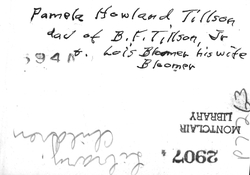 Pamela Howland Tillson
dau of B.F. Tillson, Jr
+ Lois Bloomer his wife
Bloomer
194
MONTCLAIR
LIBRARY
2907
Library
Children